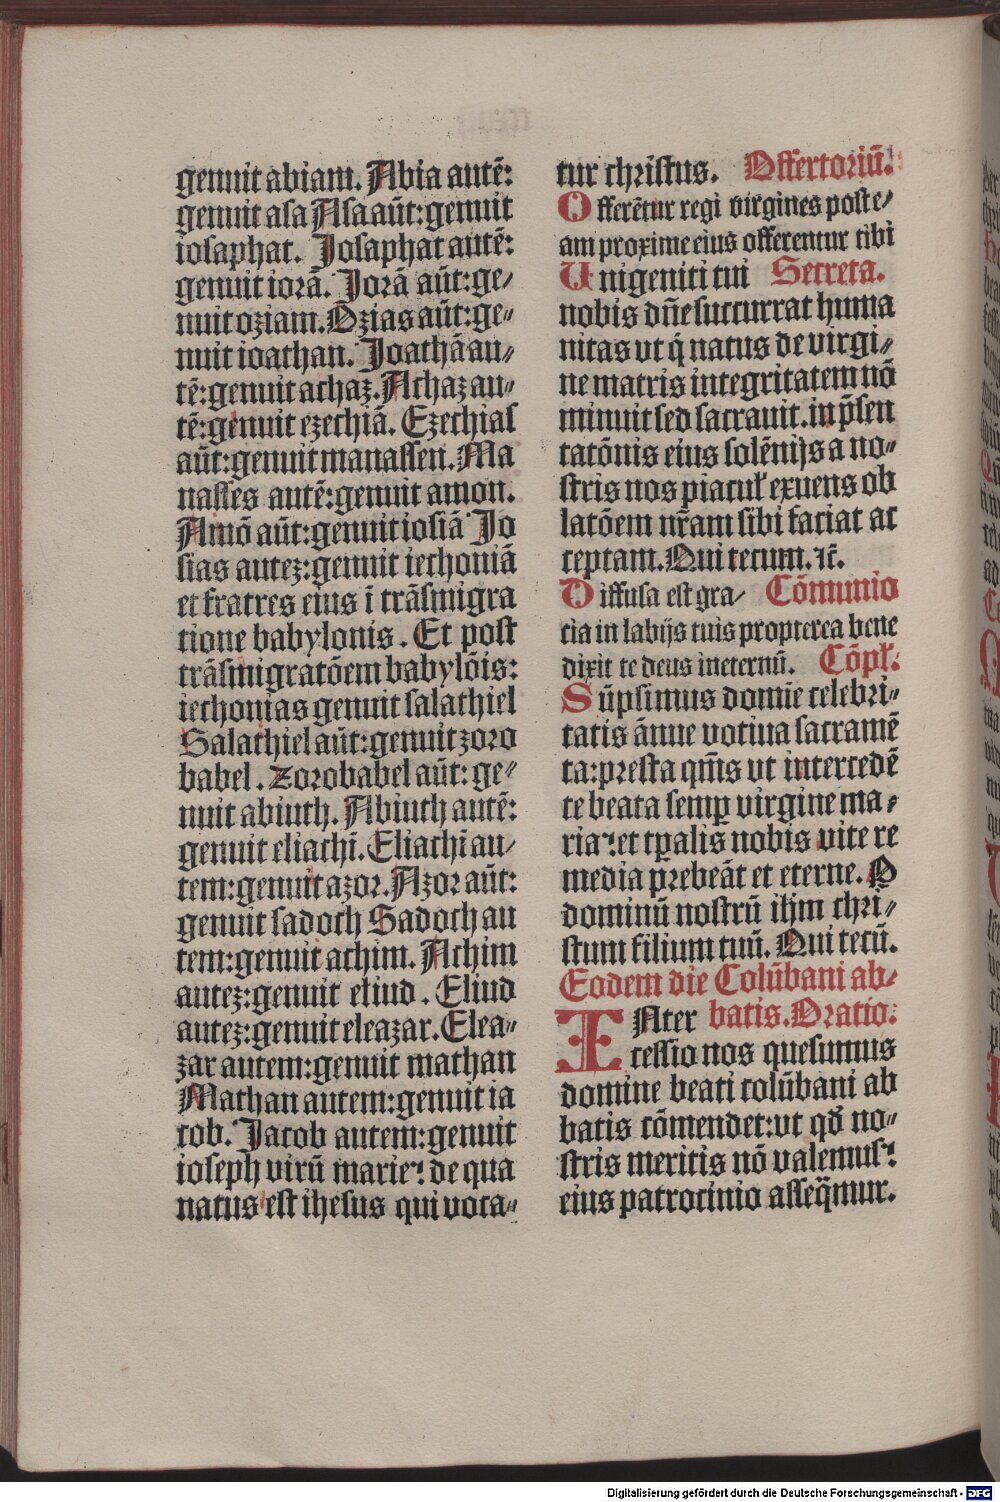 genuit abiam. Abia autē:
genuit asa Asa aūt: genuit
iosaphat. Josaphat autē:
genuit iorā. Jorā aūt: ge⸗
nuit oziam. Ozias aūt: ge⸗
nuit ioathan. Joathā au⸗
tē: genuit achaz. Achaz au⸗
tē: genuit ezechiā. Ezechias
aūt: genuit manassen. Ma
nasses autē: genuit amon.
Amō aūt: genuit iosiā Jo
sias autez: genuit iechoniā
et fratres eius ī trāsmigra
tione babylonis. Et post
trāsmigratōem babylōis:
iechonias genuit salathiel
Salathiel aūt: genuit zoro
babel. Zorobabel aūt: ge⸗
nuit abiuth. Abiuth autē:
genuit eliachī. Eliachī au⸗
tem: genuit azor. Azor aūt:
genuit sadoch Sadoch au
tem: genuit achim. Achim
autez: genuit eliud. Eliud
autez: genuit eleazar. Elea⸗
zar autem: genuit mathan
Mathan autem: genuit ia
cob. Jacob autem: genuit
ioseph virū marie: de qua
natus est ihesus qui voca⸗
tur christus. Offertoriū.
Offerētur regi virgines poste⸗
am proxime eius offerentur tibi
Unigeniti tui Secreta.
nobis dn̄e succurrat huma
nitas vt q̄ natus de virgi⸗
ne matris integritatem nō
minuit sed sacrauit. in p̄sen
tatōnis eius solēnijs a no⸗
stris nos piacuł exuens ob
latōem nr̄am sibi faciat ac
ceptam. Qui tecum. ⁊c̄.
Diffusa est gra⸗ Cōmunio
cia in labijs tuis propterea bene
dixit te deus ineternū. Cōpł:
Sūpsimus domīe celebri⸗
tatis ānue votiua sacramē
ta: presta qm̄s vt intercedē
te beata semꝑ virgine ma⸗
ria: et tꝑalis nobis vite re
media prebeāt et eterne. P
dominū nostrū ihm chri⸗
stum filium tuū. Qui tecū.
Eodem die Colūbani ab⸗
INter batis. Oratio:
cessio nos quesumus
domine beati colūbani ab
batis cōmendet: vt qđ no⸗
stris meritis nō valemus:
eius patrocinio asseq̄mur.
Digitalisierung gefördert durch die Deutsche Forschungsgemeinschaft - DFG